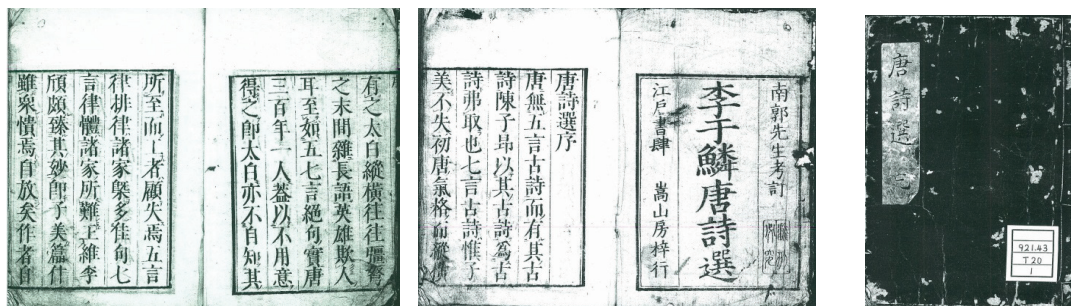 唐詩選
921.43
T20
1
南郭先生考訂
李于鱗唐詩選
江戶書肆　嵩山房梓行
唐詩選序
唐無五言古詩而有其古
詩陳子昂以其古詩為古
詩弗取也七言古詩惟子
美不失初唐氣格而縱橫
有之太白縱橫往往彊弩
之末間雜長語英雄欺人
耳至如五七言絶句實唐
三百年一人葢以不用意
得之即太白亦不自知其
所至而工者顧失焉五言
律排律諸家槩多佳句七
言律體諸家所難王維李
頎頗臻其妙即子美篇什
雖衆憒焉自放矣作者自